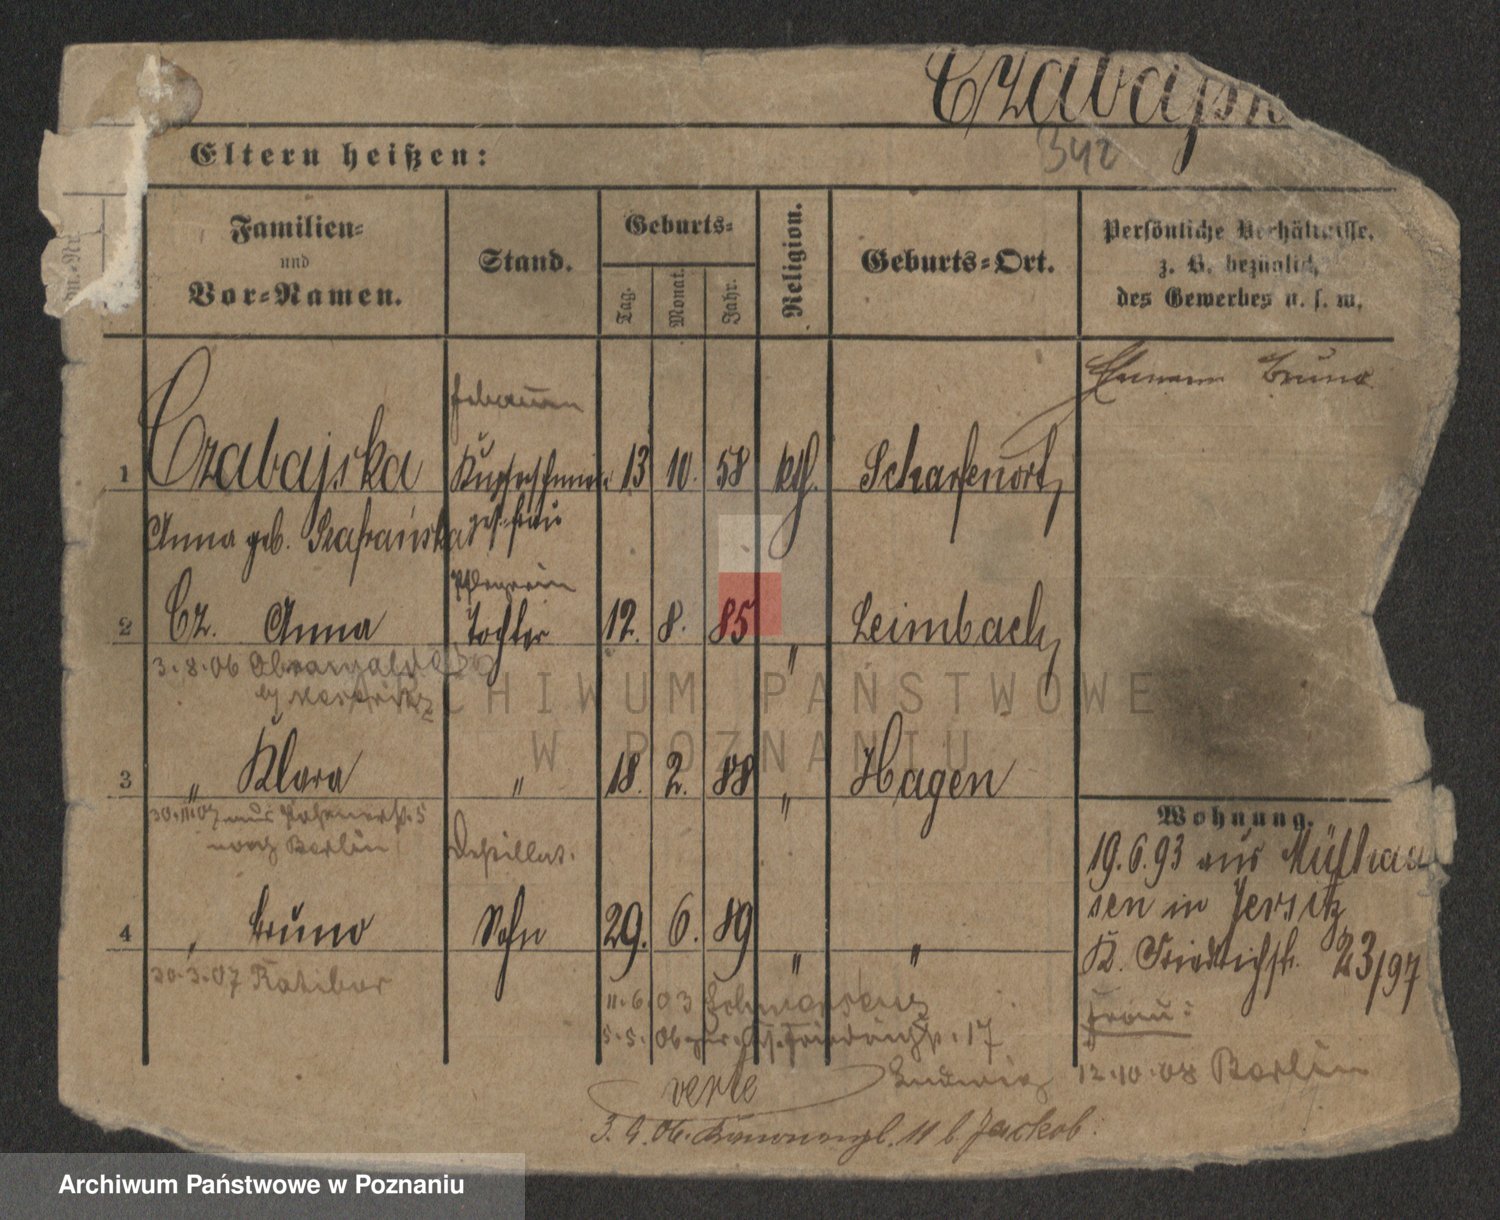 Czabajsk
342
Eltern heißen:
Familien=
und
Vor=Namen.
Stand.
Geburts=
Tag.
Monat.
Jahr.
Religion.
Geburts=Ort.
Persönliche Verhältnisse,
z. B. bezüglich
des Gewerbes u. s. w.
Ehemann Bruno
1 Czabajska Kupferschmied 13 10. 58 kth. Scharfenort
Anna geb. Szafrańska ges. frau
2 Cz. Anna Tochter 12. 8. 85 " Leimbach
3.8.06
3 " Klara " 18. 2. 88 " Hagen
30.11.07 aus 5
nach Berlin
Destillat.
4 " Bruno Sohn 29. 6. 89 " "
30.3.07 Ratibor
Wohnung.
19.6.93 aus Mülhau
sen in Jersitz
K. Friedrichstr. 23/97
Frau:
12.10.08 Berlin
11.6.03
5.5.06 17
verte
3.9.06. 11 b. Jackob.
ARCHIWUM PAŃSTWOWE
W POZNANIU
Archiwum Państwowe w Poznaniu